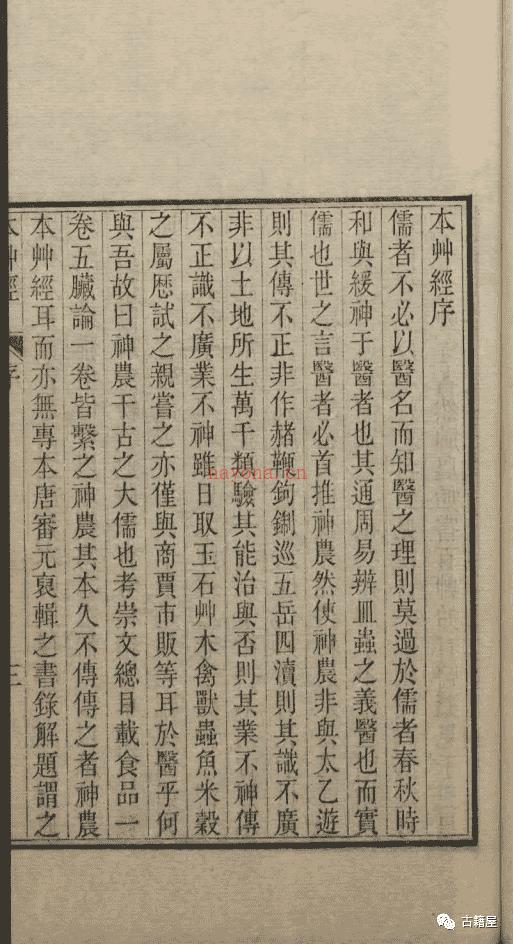 本艸經序
儒者不必以醫名而知醫之理則莫過於儒者春秋時
和與緩神于醫者也其通周易辨皿蟲之義醫也而實
儒也世之言醫者必首推神農然使神農非與太乙遊
則其傳不正非作赭鞭鉤𨮹巡五岳四瀆則其識不廣
非以土地所生萬千類驗其能治與否則其業不神傳
不正識不廣業不神雖日取玉石艸木禽獸蟲魚米穀
之屬歷試之親嘗之亦僅與商賈市販等耳於醫乎何
與吾故曰神農千古之大儒也考崇文總目載食品一
卷五臟論一卷皆繫之神農其本久不傳傳之者神農
本艸經耳而亦無專本唐審元裒輯之書錄解題謂之
本艸經 序 三
nayona.cn
古籍屋